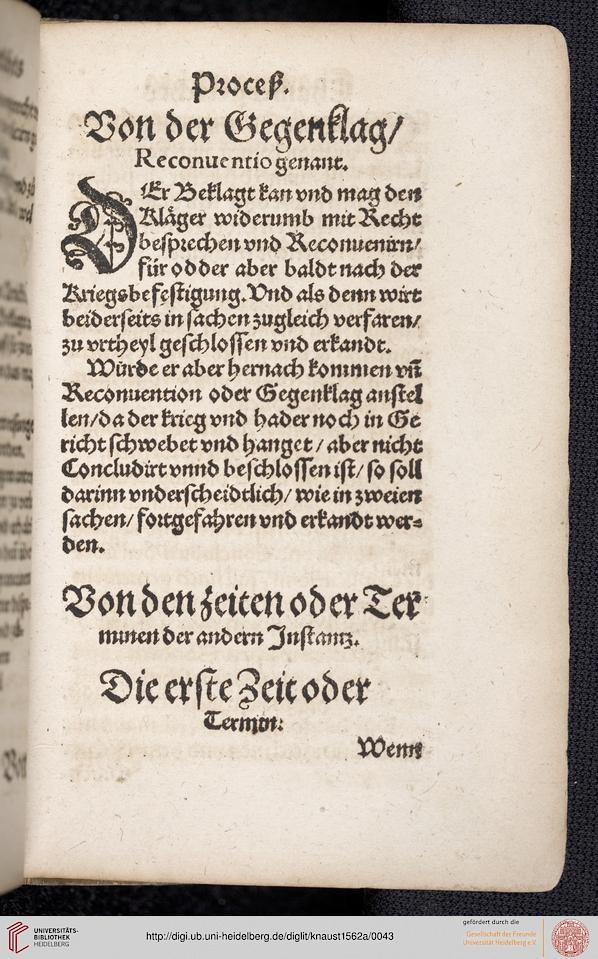 Proceß.
Von der Gegenklag/
Reconuentio genant.
DEr Beklagt kan vnd mag den
Kläger widerumb mit Recht
besprechen vnd Reconuenirn/
für odder aber baldt nach der
Kriegsbefestigung. Vnd als denn wirt
beiderseits in sachen zugleich verfaren/
zu vrtheyl geschlossen vnd erkandt.
Würde er aber hernach kommen vñ
Reconuention oder Gegenklag anstel
len/da der krieg vnd hader noch in Ge
richt schwebet vnd hanget / aber nicht
Concludirt vnnd beschlossen ist/ so soll
darinn vnderscheidtlich/ wie in zweien
sachen/ fortgefahren vnd erkandt wer=
den.
Von den zeiten oder Ter
minen der andern Instantz.
Die erste Zeit oder
Termin:
Wenn
UNIVERSITÄTS-
BIBLIOTHEK
HEIDELBERG
http://digi.ub.uni-heidelberg.de/diglit/knaust1562a/0043
gefördert durch die
Gesellschaft der Freunde
Universität Heidelberg e.V.